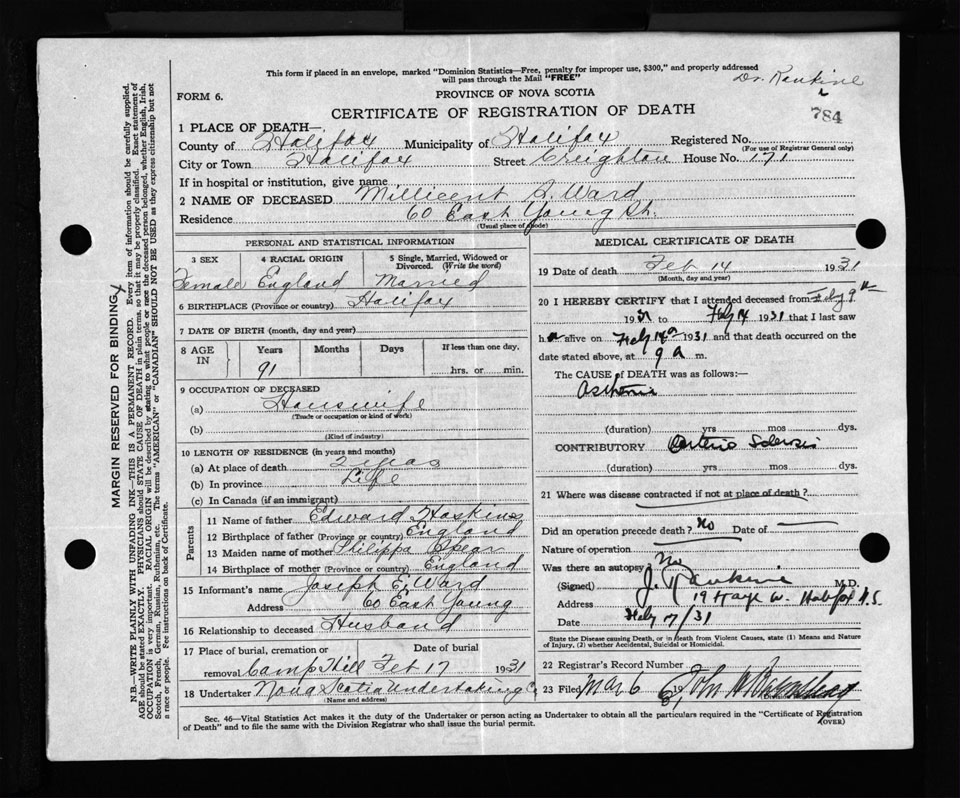 This form if placed in an envelope, marked "Dominion Statistics—Free, penalty for improper use, $300," and properly addressed
will pass through the Mail "FREE"
Dr. Rankine
784
FORM 6.
PROVINCE OF NOVA SCOTIA
CERTIFICATE OF REGISTRATION OF DEATH
1 PLACE OF DEATH—
County of Halifax Municipality of Halifax Registered No.
(For use of Registrar General only)
City or Town Halifax Street Creighton House No. 171
If in hospital or institution, give name
2 NAME OF DECEASED Millicent A. Ward
Residence 60 East Young St.
(Usual place of abode)
PERSONAL AND STATISTICAL INFORMATION
3 SEX 4 RACIAL ORIGIN 5 Single, Married, Widowed or Divorced. (Write the word)
Female England Married
6 BIRTHPLACE (Province or country) Halifax
7 DATE OF BIRTH (month, day and year)
8 AGE IN Years Months Days If less than one day.
91 hrs. or min.
9 OCCUPATION OF DECEASED
(a) Housewife
(Trade or occupation or kind of work)
(b)
(Kind of industry)
10 LENGTH OF RESIDENCE (in years and months)
(a) At place of death 2 years
(b) In province Life
(c) In Canada (if an immigrant)
Parents
11 Name of father Edward Hoskins
12 Birthplace of father (Province or country) England
13 Maiden name of mother Philippa Spear
14 Birthplace of mother (Province or country) England
15 Informant's name Joseph E. Ward
Address 60 East Young
16 Relationship to deceased Husband
17 Place of burial, cremation or removal Date of burial
Camp Hill Feb 17 1931
18 Undertaker Nova Scotia Undertaking Co
(Name and address)
MEDICAL CERTIFICATE OF DEATH
19 Date of death Feb 14 1931
(Month, day and year)
20 I HEREBY CERTIFY that I attended deceased from Feby 9th
1931 to Feby 14 1931 that I last saw
h alive on Feby 14 1931 and that death occurred on the
date stated above, at 9 a m.
The CAUSE of DEATH was as follows:—
Asthenia
(duration) yrs mos dys.
CONTRIBUTORY Arterio Sclerosis
(duration) yrs mos dys.
21 Where was disease contracted if not at place of death?
Did an operation precede death? No Date of
Nature of operation
Was there an autopsy No
(Signed) J. Rankine M.D.
Address Halifax N.S.
Date Feby 17/31
State the Disease causing Death, or in death from Violent Causes, state (1) Means and Nature
of Injury, (2) whether Accidental, Suicidal or Homicidal.
22 Registrar's Record Number
23 Filed Mar 6 1931 John
Sec. 46—Vital Statistics Act makes it the duty of the Undertaker or person acting as Undertaker to obtain all the particulars required in the "Certificate of Registration
of Death" and to file the same with the Division Registrar who shall issue the burial permit.
(OVER)
MARGIN RESERVED FOR BINDING
N.B.—WRITE PLAINLY WITH UNFADING INK—THIS IS A PERMANENT RECORD. Every item of information should be carefully supplied.
AGE should be stated EXACTLY. PHYSICIANS should STATE CAUSE OF DEATH in plain terms, so that it may be properly classified. Exact statement of
OCCUPATION is very important. RACIAL ORIGIN will be described by stating to what people or race the deceased person belonged, whether English, Irish,
Scotch, French, German, Russian, Ruthenian, etc. The terms "AMERICAN" or "CANADIAN" SHOULD NOT BE USED as they express citizenship but not
a race or people. See instructions on back of Certificate.